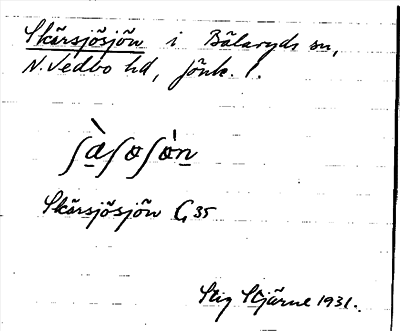 Skärsjösjön i Bälaryds sn,
N. Vedbo hd, Jönk. l.
ʃὰʃøʃø̀n
Skärsjösjön C, 35
Stig Stjärne 1931.